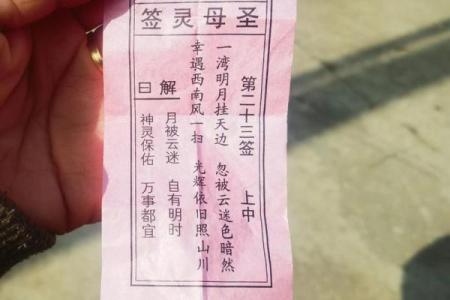 圣母灵签
第二十三签 上中
一湾明月挂天边 忽被云迷色暗然
幸遇西南风一扫 光辉依旧照山川
解曰
月被云迷 自有明时
神灵保佑 万事都宜